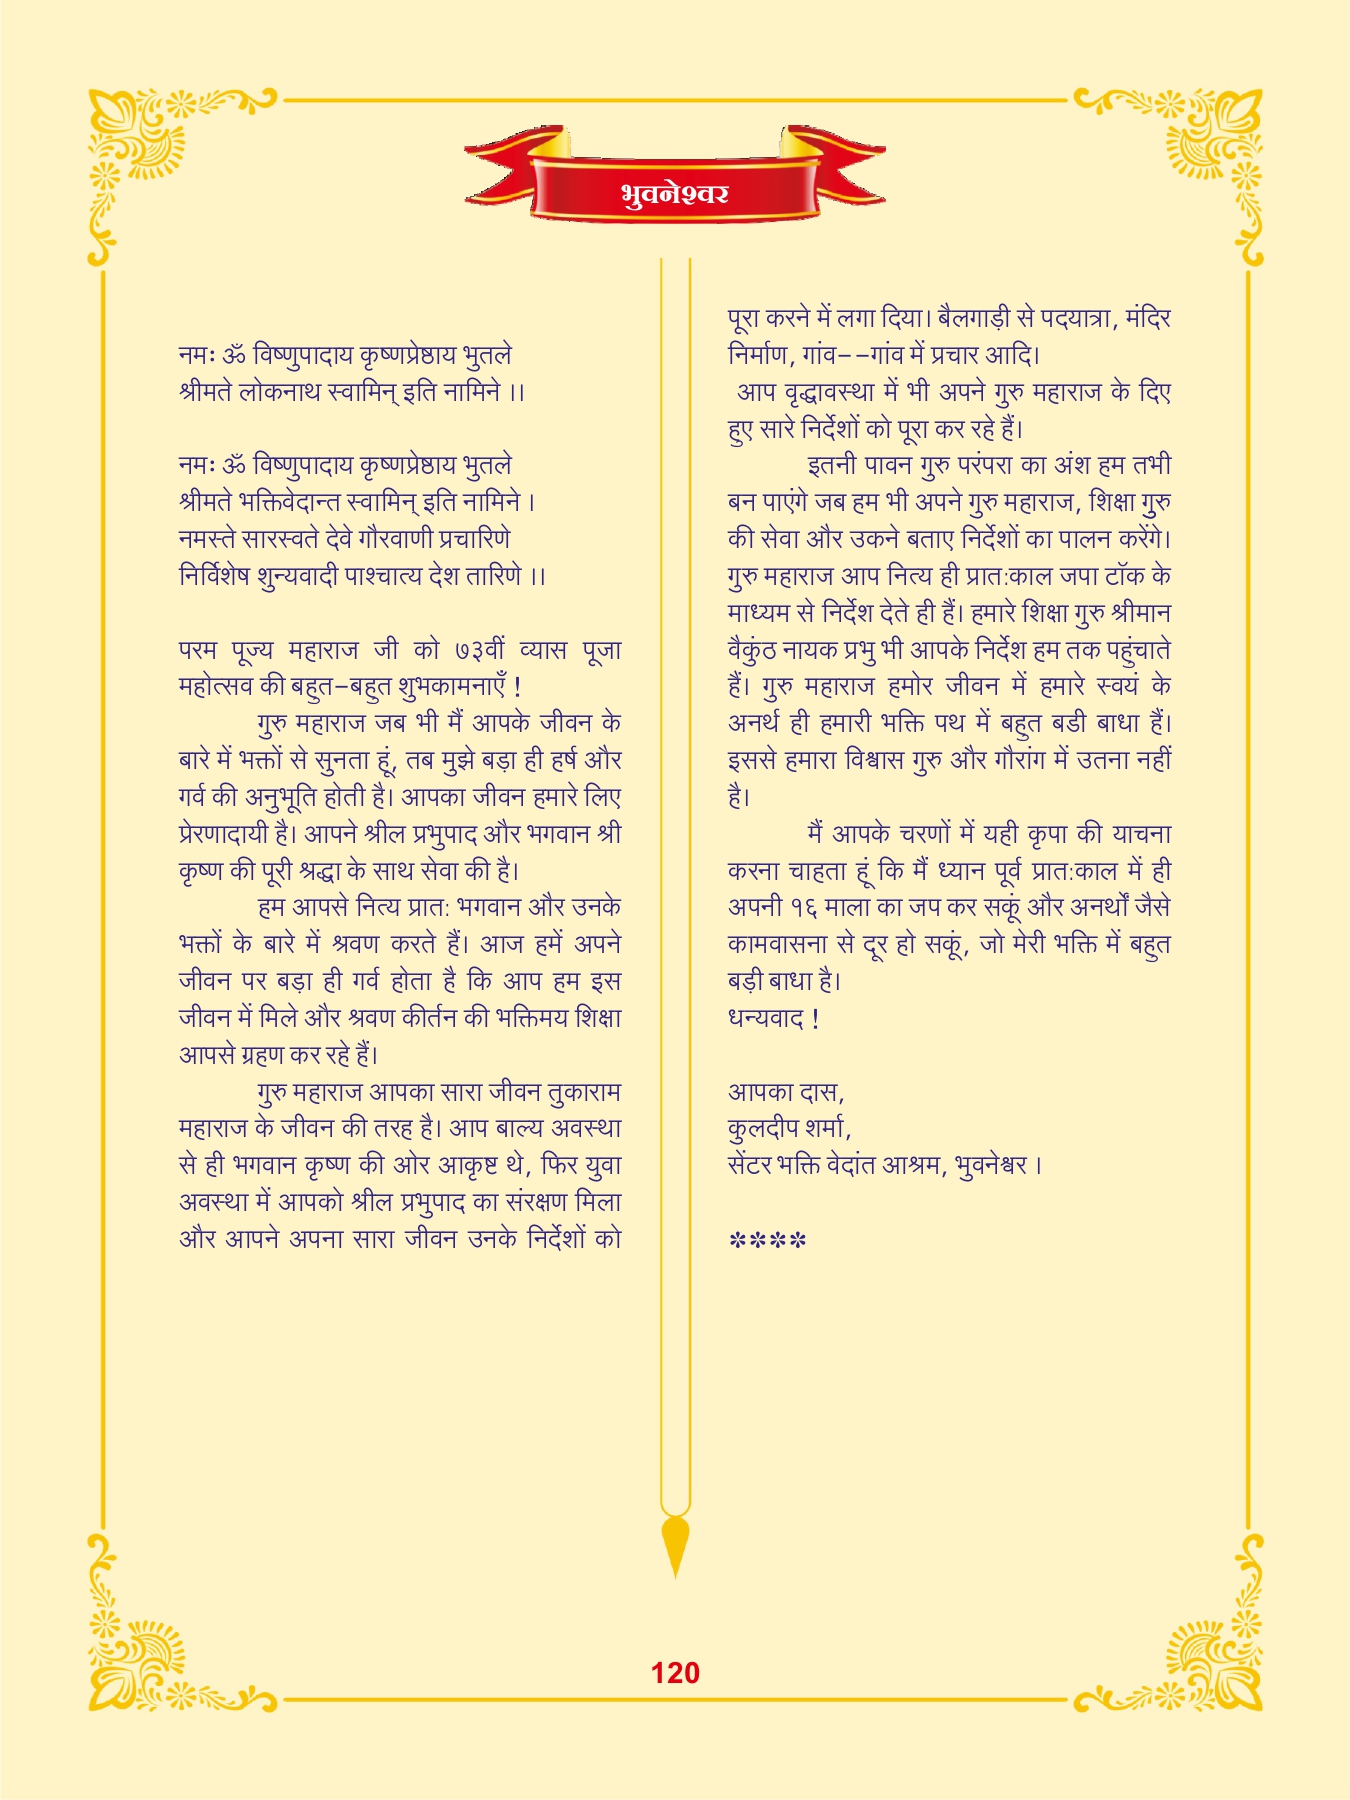 भुवनेश्वर
नमः ॐ विष्णुपादाय कृष्णप्रेष्ठाय भुतले
श्रीमते लोकनाथ स्वामिन् इति नामिने ।।
नमः ॐ विष्णुपादाय कृष्णप्रेष्ठाय भुतले
श्रीमते भक्तिवेदान्त स्वामिन् इति नामिने ।
नमस्ते सारस्वते देवे गौरवाणी प्रचारिणे
निर्विशेष शुन्यवादी पाश्चात्य देश तारिणे ।।
परम पूज्य महाराज जी को ७३वीं व्यास पूजा
महोत्सव की बहुत-बहुत शुभकामनाएँ !
गुरु महाराज जब भी मैं आपके जीवन के
बारे में भक्तों से सुनता हूं, तब मुझे बड़ा ही हर्ष और
गर्व की अनुभूति होती है। आपका जीवन हमारे लिए
प्रेरणादायी है। आपने श्रील प्रभुपाद और भगवान श्री
कृष्ण की पूरी श्रद्धा के साथ सेवा की है।
हम आपसे नित्य प्रात: भगवान और उनके
भक्तों के बारे में श्रवण करते हैं। आज हमें अपने
जीवन पर बड़ा ही गर्व होता है कि आप हम इस
जीवन में मिले और श्रवण कीर्तन की भक्तिमय शिक्षा
आपसे ग्रहण कर रहे हैं।
गुरु महाराज आपका सारा जीवन तुकाराम
महाराज के जीवन की तरह है। आप बाल्य अवस्था
से ही भगवान कृष्ण की ओर आकृष्ट थे, फिर युवा
अवस्था में आपको श्रील प्रभुपाद का संरक्षण मिला
और आपने अपना सारा जीवन उनके निर्देशों को
पूरा करने में लगा दिया। बैलगाड़ी से पदयात्रा, मंदिर
निर्माण, गांव--गांव में प्रचार आदि।
आप वृद्धावस्था में भी अपने गुरु महाराज के दिए
हुए सारे निर्देशों को पूरा कर रहे हैं।
इतनी पावन गुरु परंपरा का अंश हम तभी
बन पाएंगे जब हम भी अपने गुरु महाराज, शिक्षा गुरु
की सेवा और उकने बताए निर्देशों का पालन करेंगे।
गुरु महाराज आप नित्य ही प्रात:काल जपा टॉक के
माध्यम से निर्देश देते ही हैं। हमारे शिक्षा गुरु श्रीमान
वैकुंठ नायक प्रभु भी आपके निर्देश हम तक पहुंचाते
हैं। गुरु महाराज हमोर जीवन में हमारे स्वयं के
अनर्थ ही हमारी भक्ति पथ में बहुत बडी बाधा हैं।
इससे हमारा विश्वास गुरु और गौरांग में उतना नहीं
है।
मैं आपके चरणों में यही कृपा की याचना
करना चाहता हूं कि मैं ध्यान पूर्व प्रात:काल में ही
अपनी १६ माला का जप कर सकूं और अनर्थों जैसे
कामवासना से दूर हो सकूं, जो मेरी भक्ति में बहुत
बड़ी बाधा है।
धन्यवाद !
आपका दास,
कुलदीप शर्मा,
सेंटर भक्ति वेदांत आश्रम, भुवनेश्वर ।
****
120